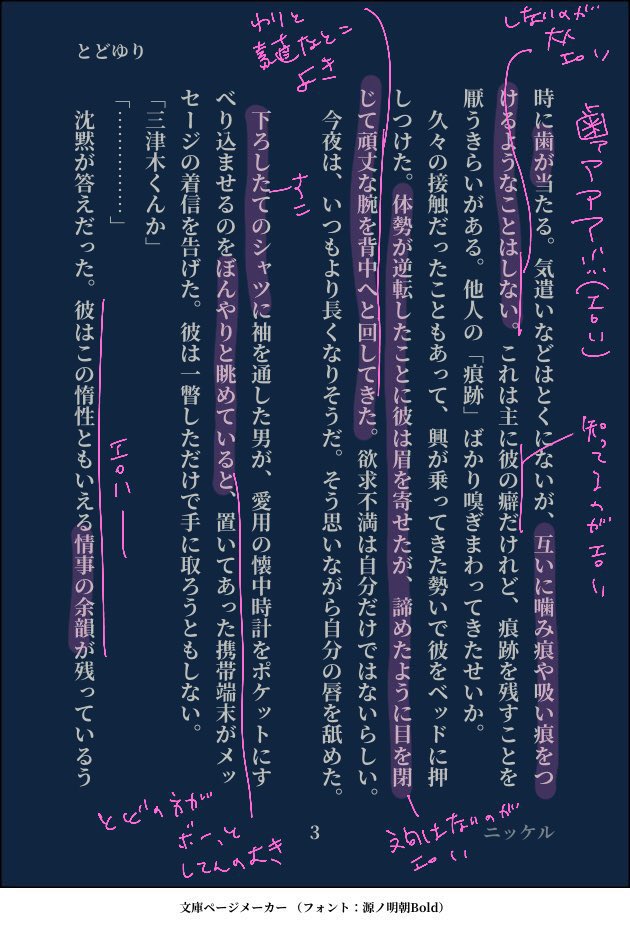 とどゆり
時に歯が当たる。気遣いなどはとくにないが、互いに噛み痕や吸い痕をつ
けるようなことはしない。これは主に彼の癖だけれど、痕跡を残すことを
厭うきらいがある。他人の「痕跡」ばかり嗅ぎまわってきたせいか。
久々の接触だったこともあって、興が乗ってきた勢いで彼をベッドに押
しつけた。体勢が逆転したことに彼は眉を寄せたが、諦めたように目を閉
じて頑丈な腕を背中へと回してきた。欲求不満は自分だけではないらしい。
今夜は、いつもより長くなりそうだ。そう思いながら自分の唇を舐めた。
下ろしたてのシャツに袖を通した男が、愛用の懐中時計をポケットにす
べり込ませるのをぼんやりと眺めていると、置いてあった携帯端末がメッ
セージの着信を告げた。彼は一瞥しただけで手に取ろうともしない。
「三津木くんか」
「……………」
沈黙が答えだった。彼はこの惰性ともいえる情事の余韻が残っているう
歯ァアアア(エロい)
しないのが
大人
エロい
知ってるのがエロい
わりと
素直なとこ
よき
すこ
エロい
文句はないのが
エロい
とどの方が
ボーっと
してんのよき
3
ニッケル
文庫ページメーカー（フォント：源ノ明朝Bold）